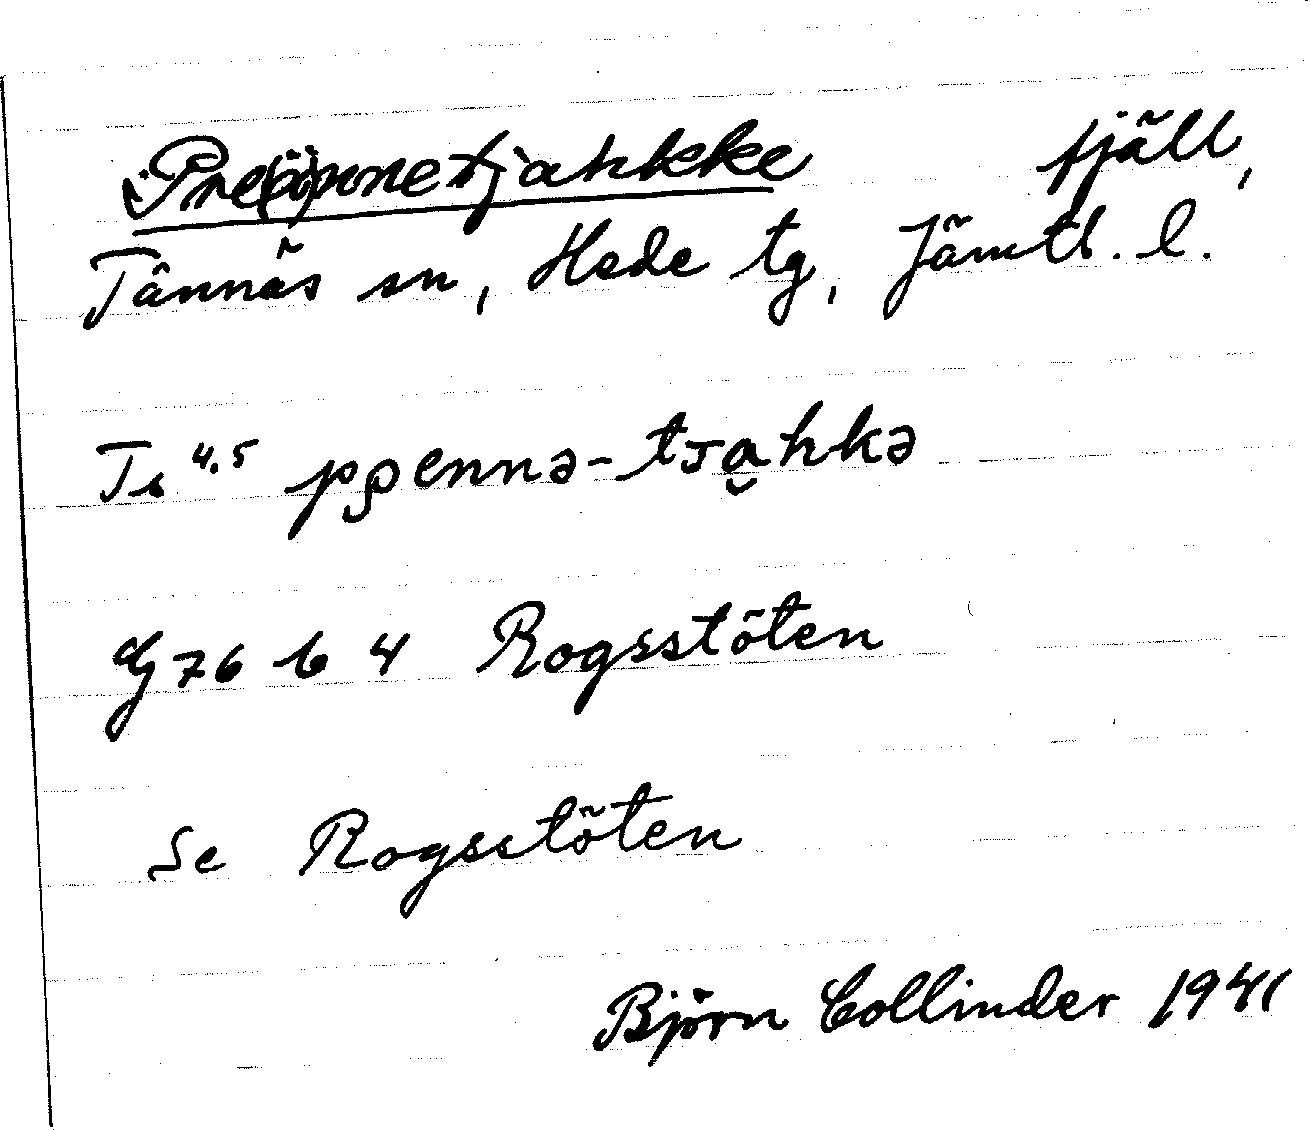 Pre(ä)nnetjahkke fjäll,
Tännäs sn, Hede tg, Jämtl. l.
Ts 4.5 pρennə-tsa̮hkə
G 76 b 4 Rogsstöten
Se Rogsstöten
Björn Collinder 1941